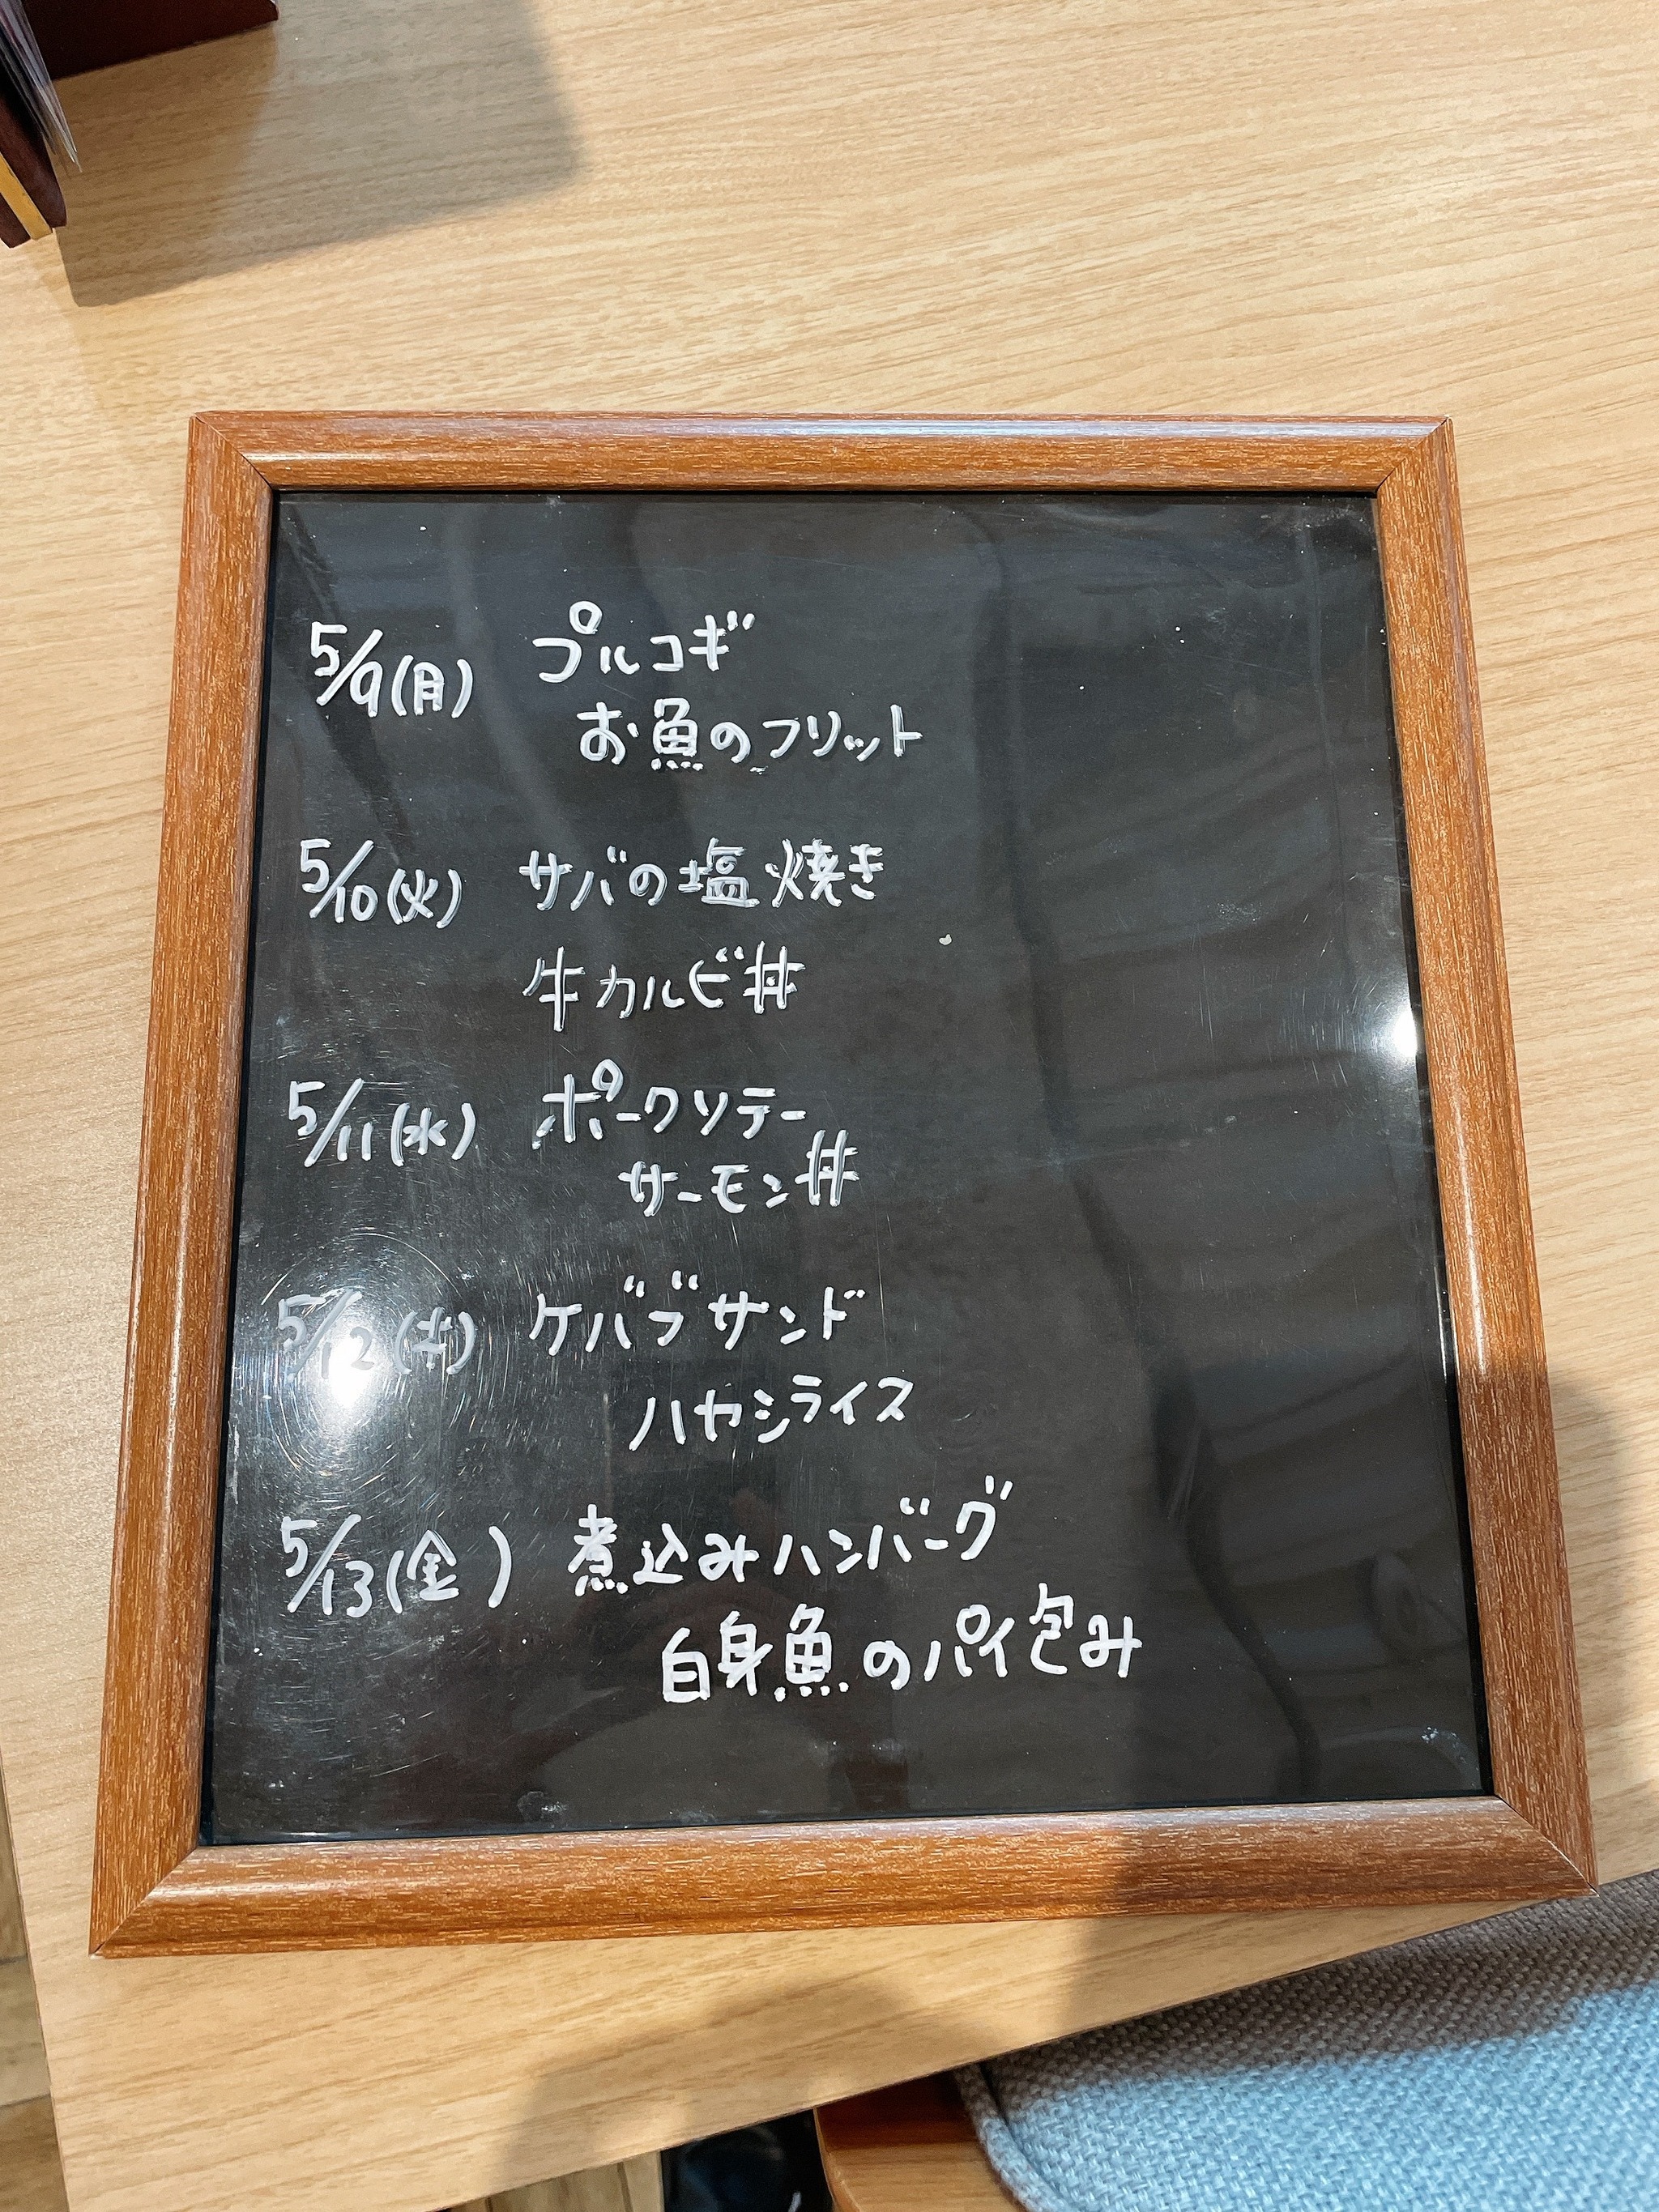 5/9(月) プルコギ
お魚のフリット
5/10(火) サバの塩焼き
牛カルビ丼
5/11(水) ポークソテー
サーモン丼
5/12(木) ケバブサンド
ハヤシライス
5/13(金) 煮込みハンバーグ
白身魚のパイ包み